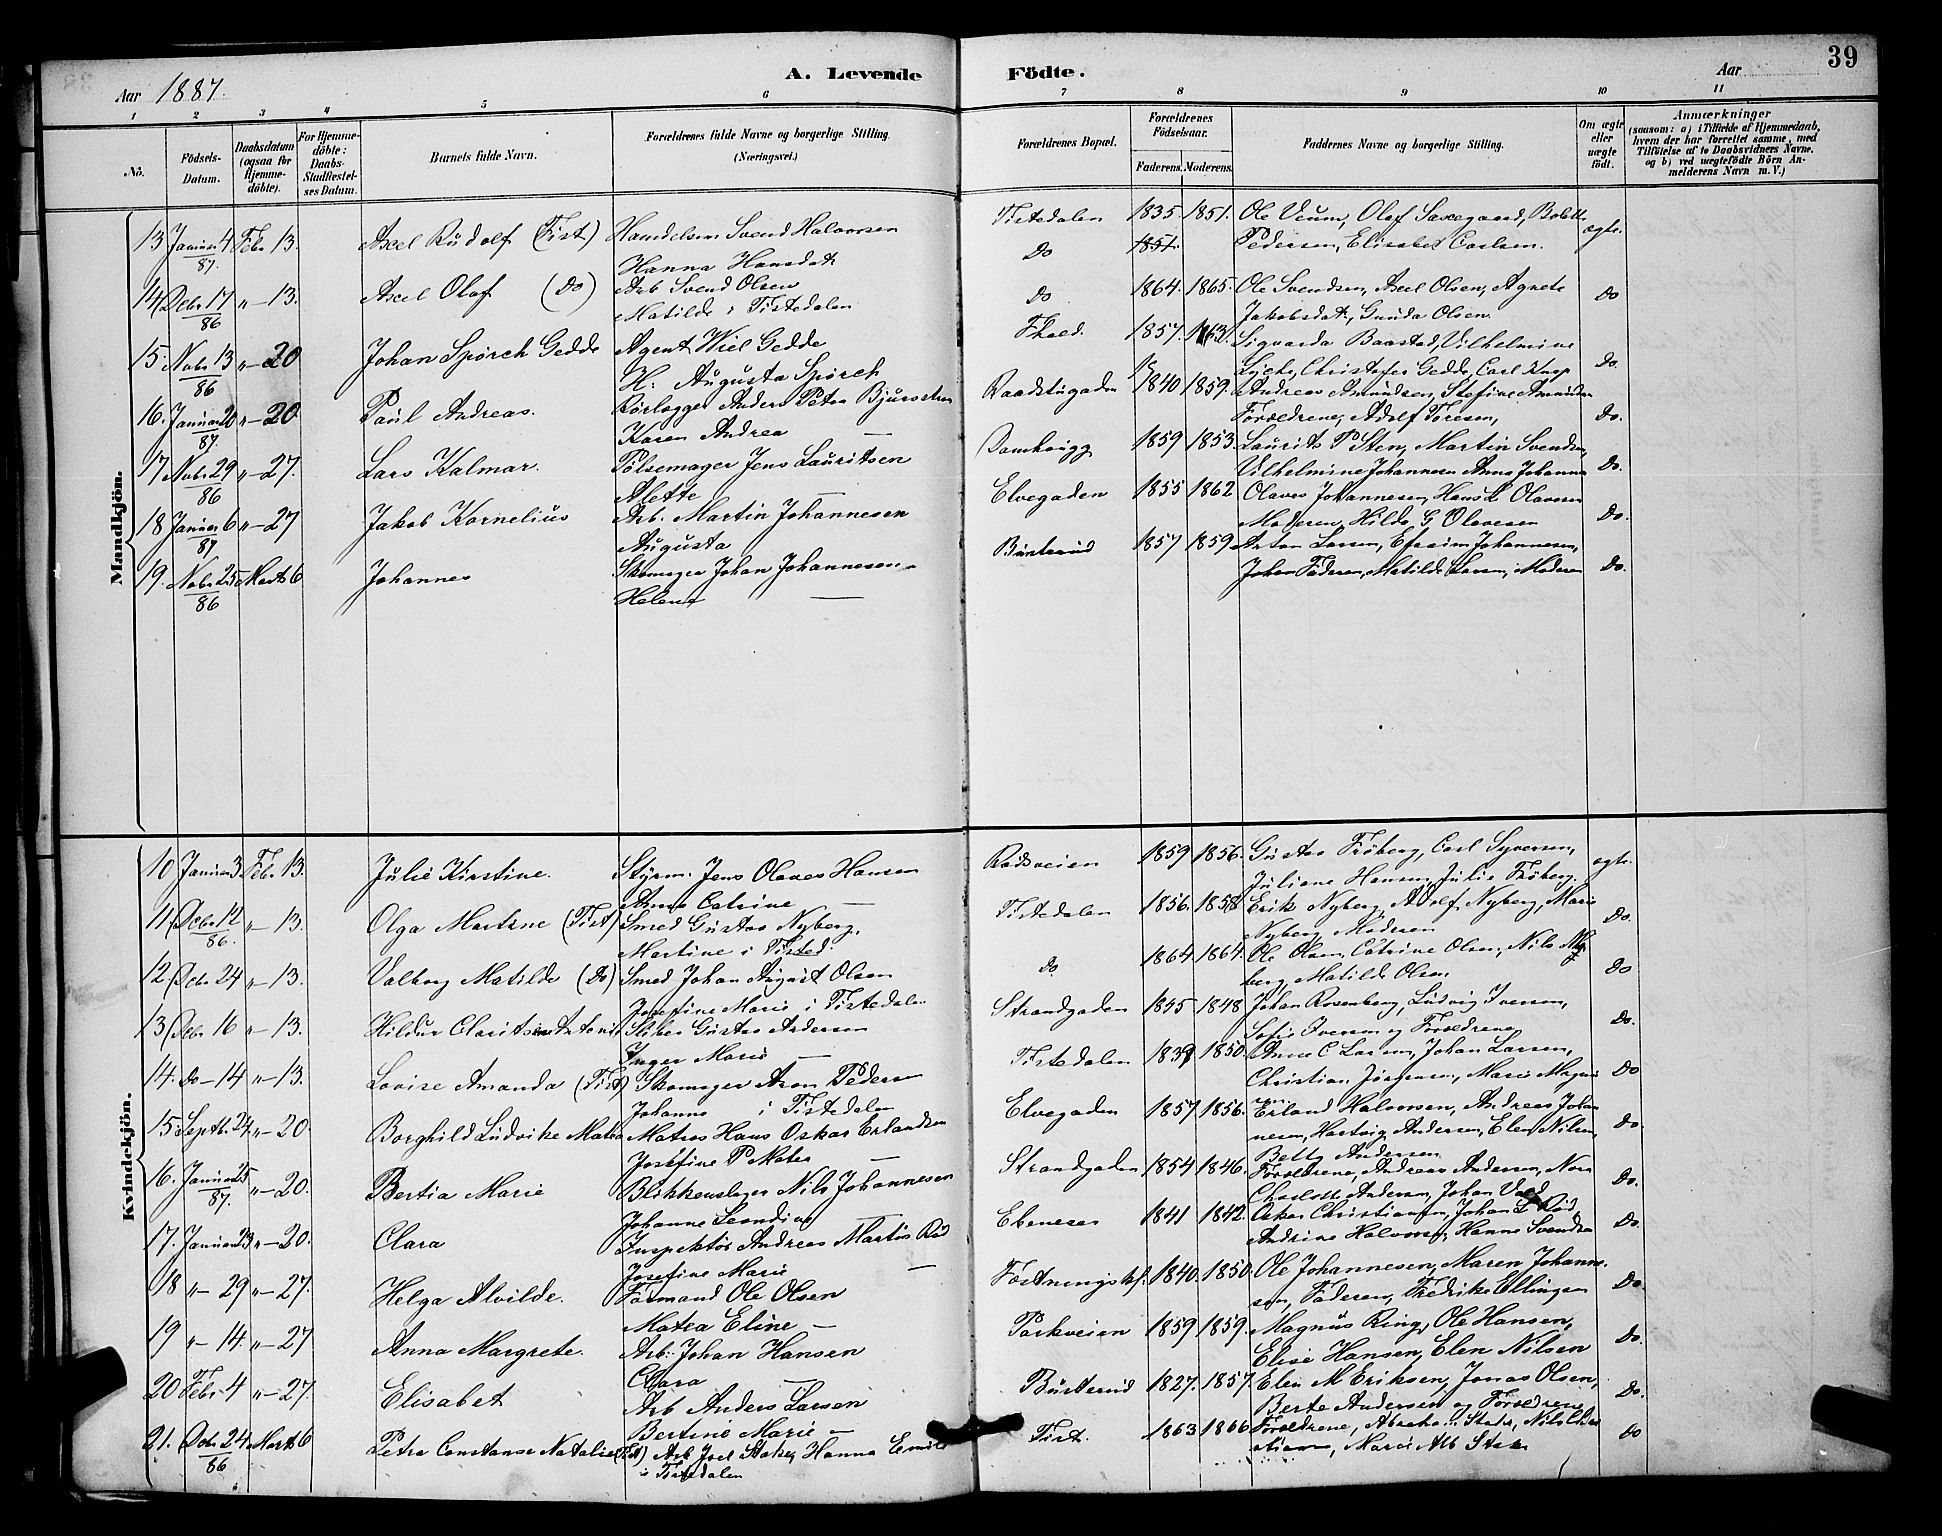 39
Aar 1887. A. Levende Födte. Aar
1 2 3 4 5 6 7 8 9 10 11
No.
Födsels-Datum.
Daabsdatum (ogsaa for Hjemme-döbte).
For Hjemme-döbte: Daabs-Stadfæstel-ses Datum.
Barnets fulde Navn.
Forældrenes fulde Navne og borgerlige Stilling. (Næringsvei.)
Forældrenes Bopæl.
Forældrenes Födselsaar.
Faderens. Moderens.
Faddernes Navne og borgerlige Stilling.
Om ægte eller uægte födt.
Anmærkninger
(saasom: a) i Tilfælde af Hjemmedaab, hvem der har forrettet samme, med Tilföielse af to Daabsvidners Navne. og b) ved uægtefödte Börn An-melderens Navn m. V.)
Mandkjön.
13 Januar 4 87. Febr 13. Axel Rudolf (Tist) Handelsm Svend Halvorsen Tistedalen 1835. 1851. Ole Veum, Olaf Saxegaard, Bolette ægte.
Hanna Hansdat Do 1851. Pedersen, Elisabet Carlsen.
14 Debr 17 86 " - 13. Axel Olaf (Do) Arb Svend Olsen Do 1864. 1865. Ole Svendsen, Axel Olsen, Agnete Do
Matilde i Tistedalen Jakobsdat, Gunda Olsen.
15. Nobr 13 86 " - 20 Johan Spörch Gedde Agent Wiel Gedde Fhald. 1857. 1863. Sigvarda Baastad, Vilhelmine
H: Augusta Spörch Lyche, Christofer Gedde, Carl Do.
16. Januar 20 87. " - 20 Paul Andreas. Rörlægger Anders Petter Bjurström Raadstugaden 1840 1859. Andreas Amundsen, Stefine Amundsen
Karen Andrea — Forældrene, Adolf Toresen, Do.
17 Nobr 29 86 " - 27. Lars Kalmar. Pölsemager Jens Lauritsen Damhaugg 1859 1853. Laurits P Sten, Martin Svendsen,
Alette — Vilhelmine Johannesen Anna Johanna Do.
18 Januar 6 87 " - 27 Jakob Kornelius Arb. Martin Johannesen Elvegaden 1855 1862 Olaves Johannesen, Hans L Olavesen
Augusta Moderen, Hilda G Olavesen Do.
19. Nobr 25 86 Marts 6 Johannes Skomager Johan Johannesen Büsterud 1857 1859 Anton Larsen, Efraim Johannesen,
Helene — Johan Faderen, Matilde Larsen, Moderen Do.
Kvindekjön.
10 Januar 3 Febr 13. Julie Kirstine. Styrm. Jens Olaves Hansen Rödsveien 1859 1856. Gustav Fröberg, Carl Syversen, ægte.
Anne Catrine — Juliane Hansen, Julie Fröberg.
11 Debr 12 86. " - 13. Olga Martine (Tist) Smed Gustav Nyberg, Tistedalen 1856. 1858 Erik Nyberg, Adolf Nyberg, Marie Do.
Martine i Tisted. Nyberg Moderen
12 Debr 24 " - 13. Valborg Matilde (Do) Smed Johan August Olsen Do 1864 1864. Ole Olsen, Catrine Olsen, Nils Ny
Josefine Marie i Tistedalen berg, Matilde Olsen Do
13 Debr 16 " - 13. Hildur Gustav Andersen Strandgaden 1855 1848 Johan Rosenberg, Ludvig Iversen,
Inger Marie — Sofie Iversen og Forældrene Do.
14. Do - 14 " - 13. Lovise Amanda (Tist) Skomager Aron Pedersen Tistedalen 1839 1850. Anne C Larsen, Johan Larsen,
Johanne i Tistedalen Christian Jörgensen, Marie Do
15 Septbr 27 " - 20. Borghild Ludvike Matea Matros Hans Oskar Erlandsen Elvegaden 1857 1856. Erland Halvorsen, Andreas Johan
Josefine P — nesen, Hartvig Andersen, Elen Nilsen, Do.
Betty Andersen
16. Januar 25 87. " - 20. Bertia Marie Blikkenslager Nils Johannesen Strandgaden 1854 1846. Forældrene, Andreas Andersen, Nora Do.
Johanne Leondine Charlotte Andersen, Johan
17. Januar 23 " - 20. Clara Inspektör Andreas Martös Röd Ebeneser 1841 1842. Oskar Christiansen, Johan Röd,
Josefine Marie — Andrine Halvorsen, Hanne Svendsen Do.
18 " - 29 " - 27. Helga Alvilde. Formand Ole Olsen Fæstningstf. 1840. 1850. Ole Johannesen, Maren Johanne
Matea Eline — sen, Faderen, Fredrikke Ellingsen Do.
19 " - 14. " - 27 Anna Margrete. Arb: Johan Hansen Parkveien 1859 1859. Magnus Ring, Ole Hansen,
Clara — Elise Hansen, Elen Nilsen Do.
20 Febr 4 " - 27. Elisabet Arb Anders Larsen Busterud 1827. 1857. Elen M Eriksen, Jonas Olsen, Do.
Bertine Marie — Berte Andersen og Forældrene
21. Debr 24 86 Marts 6 Petra Constanse Natalie (Tist) Arb Joel Stake, Hanna Emilie Tist. 1863 1866 Forældrene, Abraham Stake, Nils Chri Do
i Tistedalen stiansen, Marie Stake